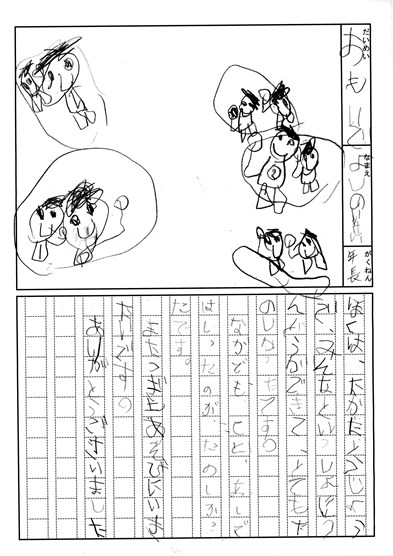 だいめい
おもいで
なまえ
よしの
がくねん
年長
ぼくは、たかだどうじょう
で、みんなといっしょにう
んどうができて、とてもた
のしかったです。
なかでも、
はしったのが、たのしかっ
たです。
またつぎもあそびにいいき
たいです。
ありがとうございました